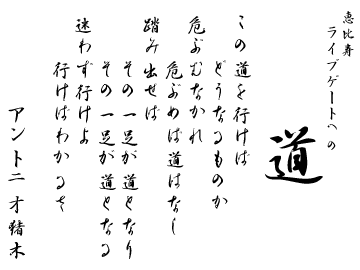 恵比寿
ライブゲートへの
道
この道を行けば
どうなるものか
危ぶむなかれ
危ぶめば道はなし
踏み出せば
その一足が道となり
その一足が道となる
迷わず行けよ
行けばわかるさ
アントニオ猪木